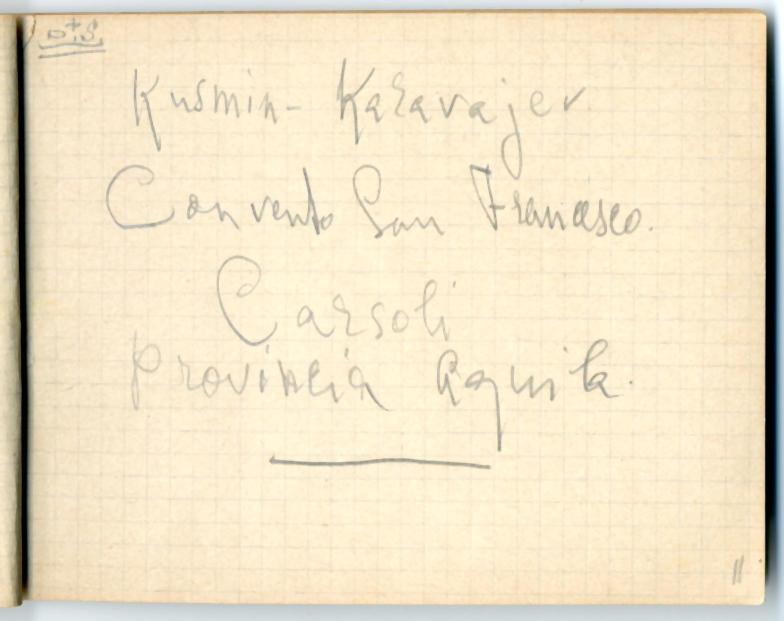 Kusmin- Karavajev
Convento San Francesco.
Carsoli
Provincia Aquila.
11